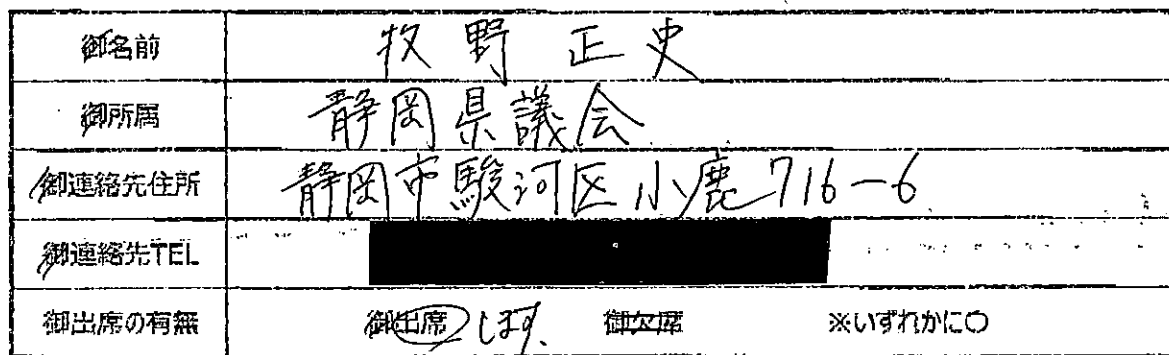 御名前 牧野 正史
御所属 静岡県議会
御連絡先住所 静岡市駿河区小鹿716-6
御連絡先TEL
御出席の有無 御出席 します、 御欠席 ※いずれかに○